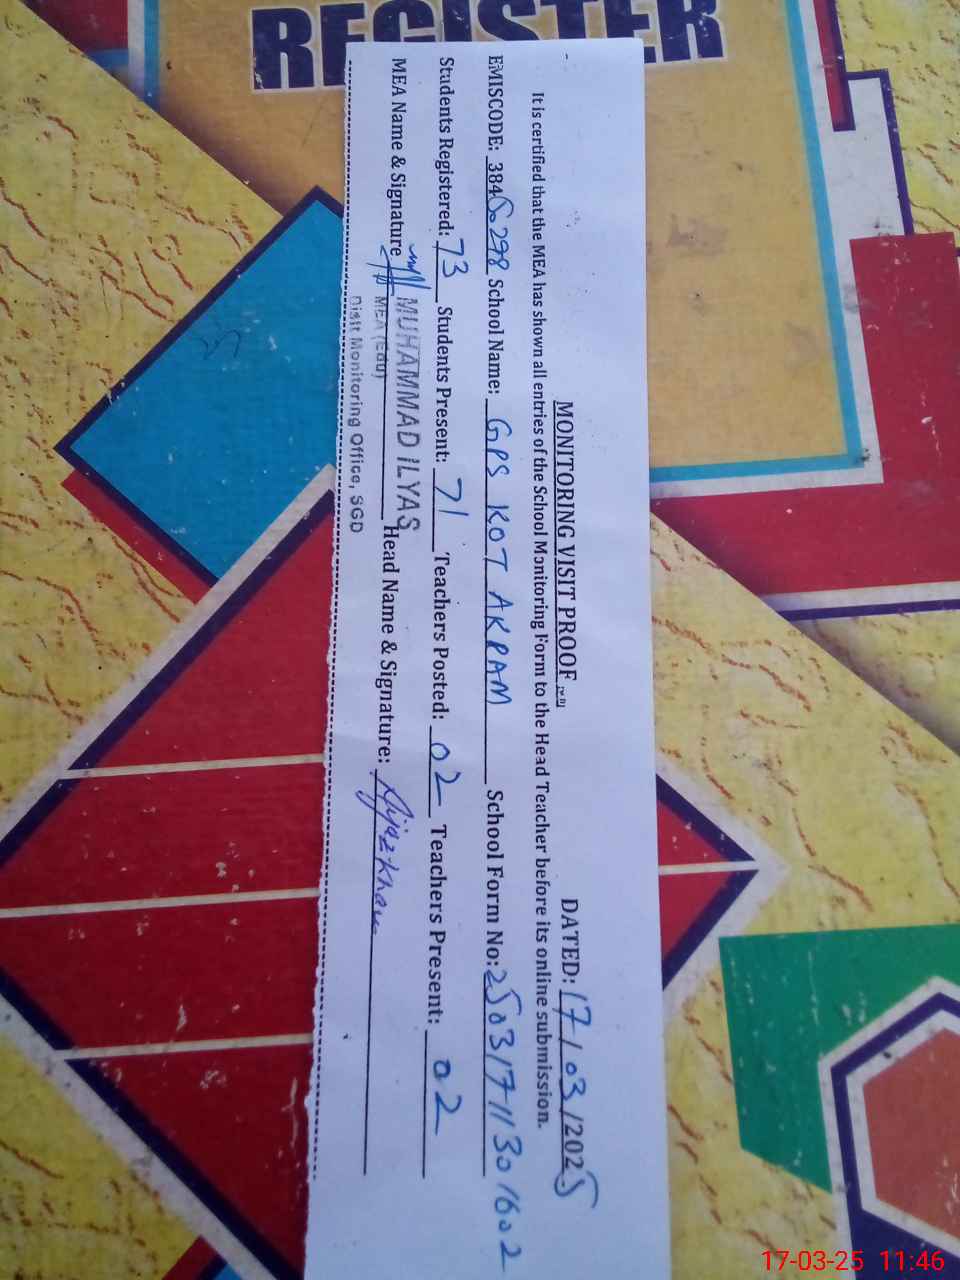 REGISTER
MONITORING VISIT PROOF
DATED: 17/03/2025
It is certified that the MEA has shown all entries of the School Monitoring Form to the Head Teacher before its online submission.
EMISCODE: 38450298 School Name: GPS KOT AKRAM School Form No: 25031711301602
Students Registered: 73 Students Present: 71 Teachers Posted: 02 Teachers Present: 02
MEA Name & Signature MUHAMMAD ILYAS Head Name & Signature: Aijaz Khan
MEA (Edu)
Distt Monitoring Office, SGD
17-03-25 11:46